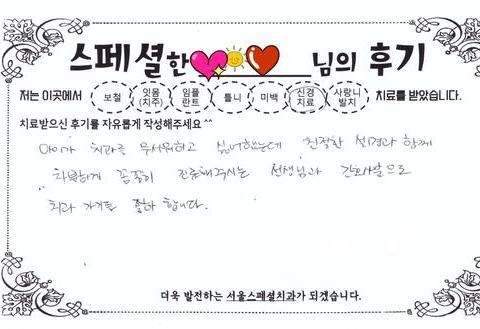 스페셜한 님의 후기
저는 이곳에서 보철 잇몸(치주) 임플란트 틀니 미백 신경치료 사랑니발치 치료를 받았습니다.
치료받으신 후기를 자유롭게 작성해주세요^^
아이가 치과를 무서워하고 싫어했는데 친절한 설명과 함께
차분하게 꼼꼼히 진료해주시는 선생님과 간호사분으로
치과 가기를 좋아 합니다.
더욱 발전하는 서울스페셜치과가 되겠습니다.